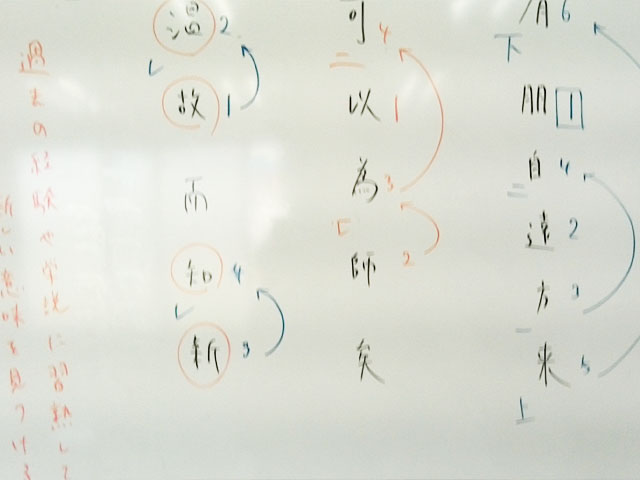 有朋自遠方来
6 1 4 2 3 5
下 二 一 上
可以為師矣
4 1 3 2
二 レ
温故而知新
2 1 4 3
レ レ
過去の経験や学説に習熟して
新しい意味を見つける